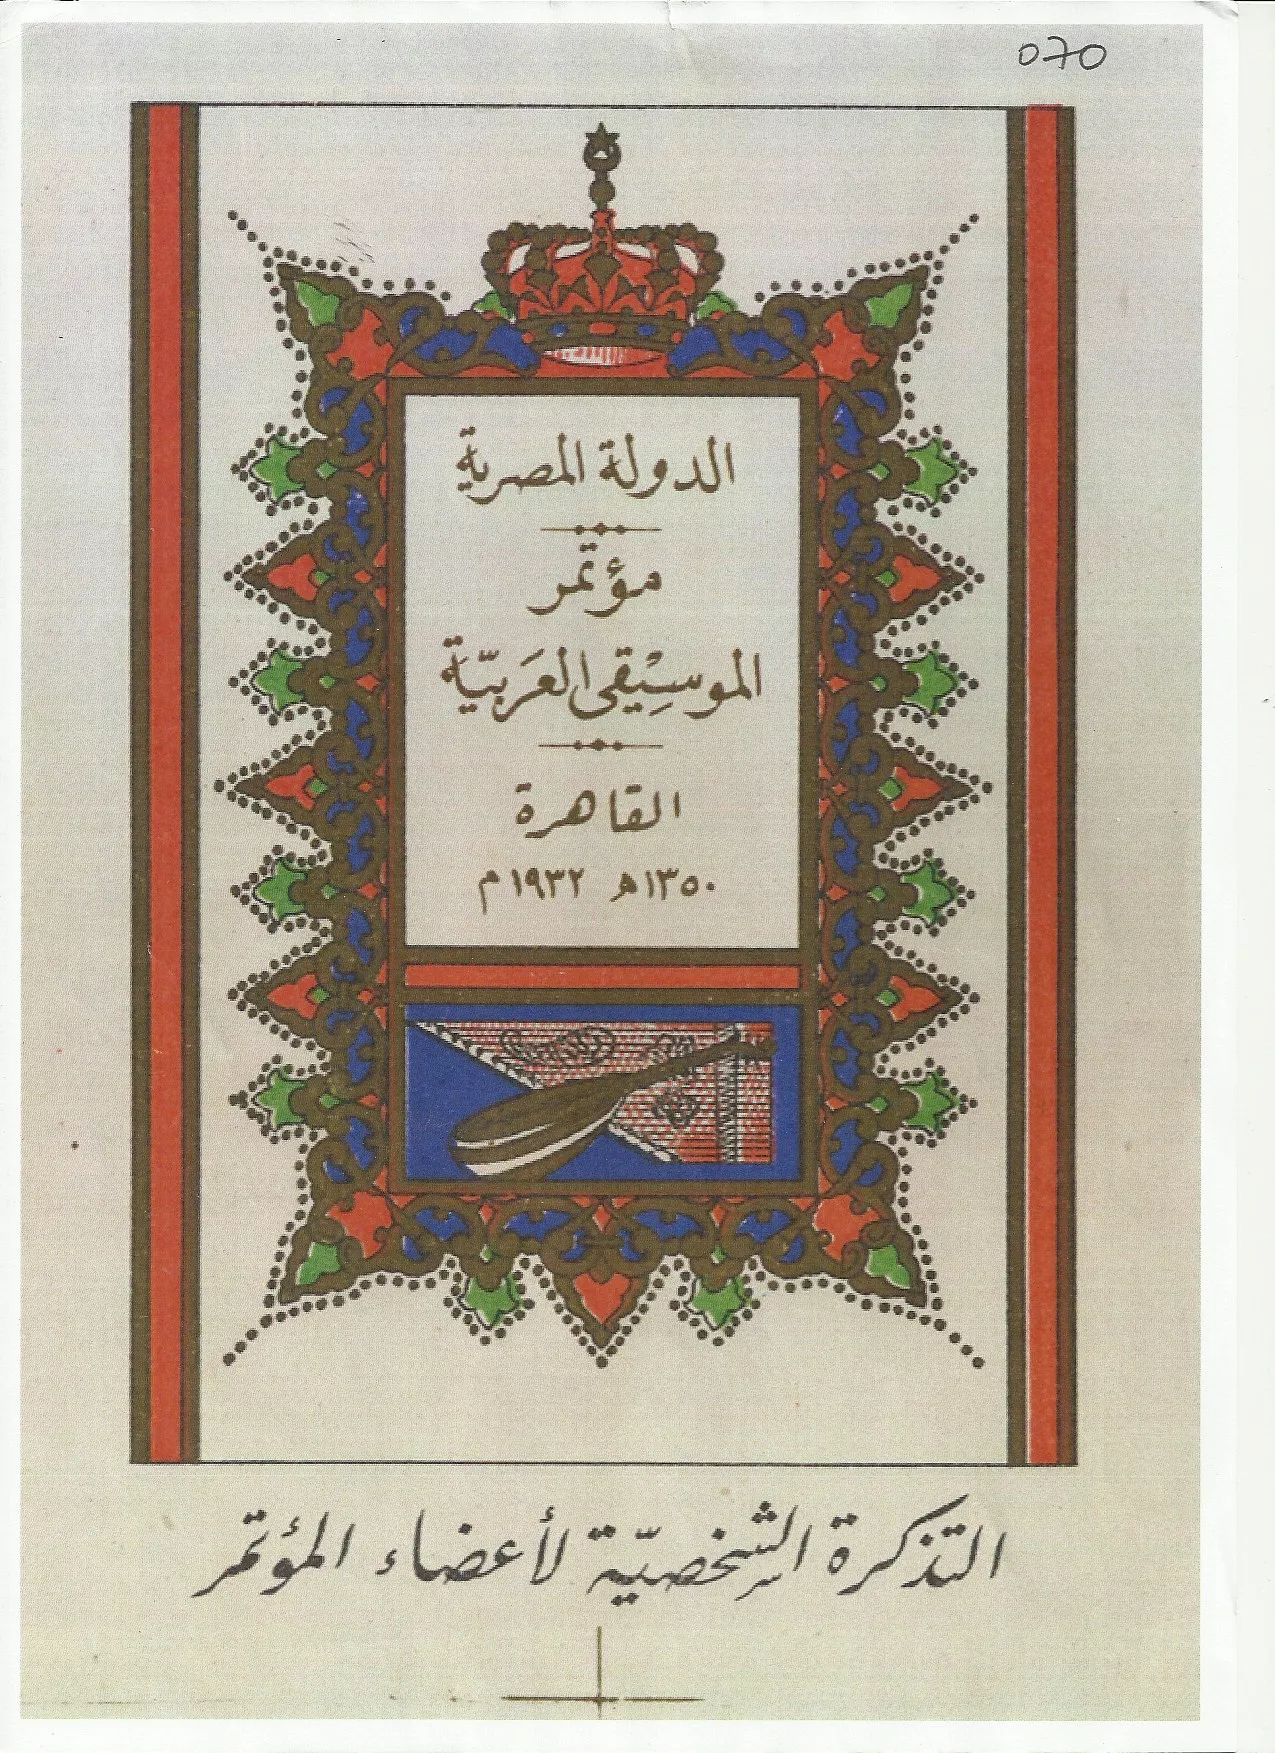 070
الدولة المصرية
مؤتمر
الموسِيْقى العَربيّة
القاهرة
١٣٥٠ھ ١٩٣٢ م
التذكرة الشخصيّة لأعضاء المؤتمر